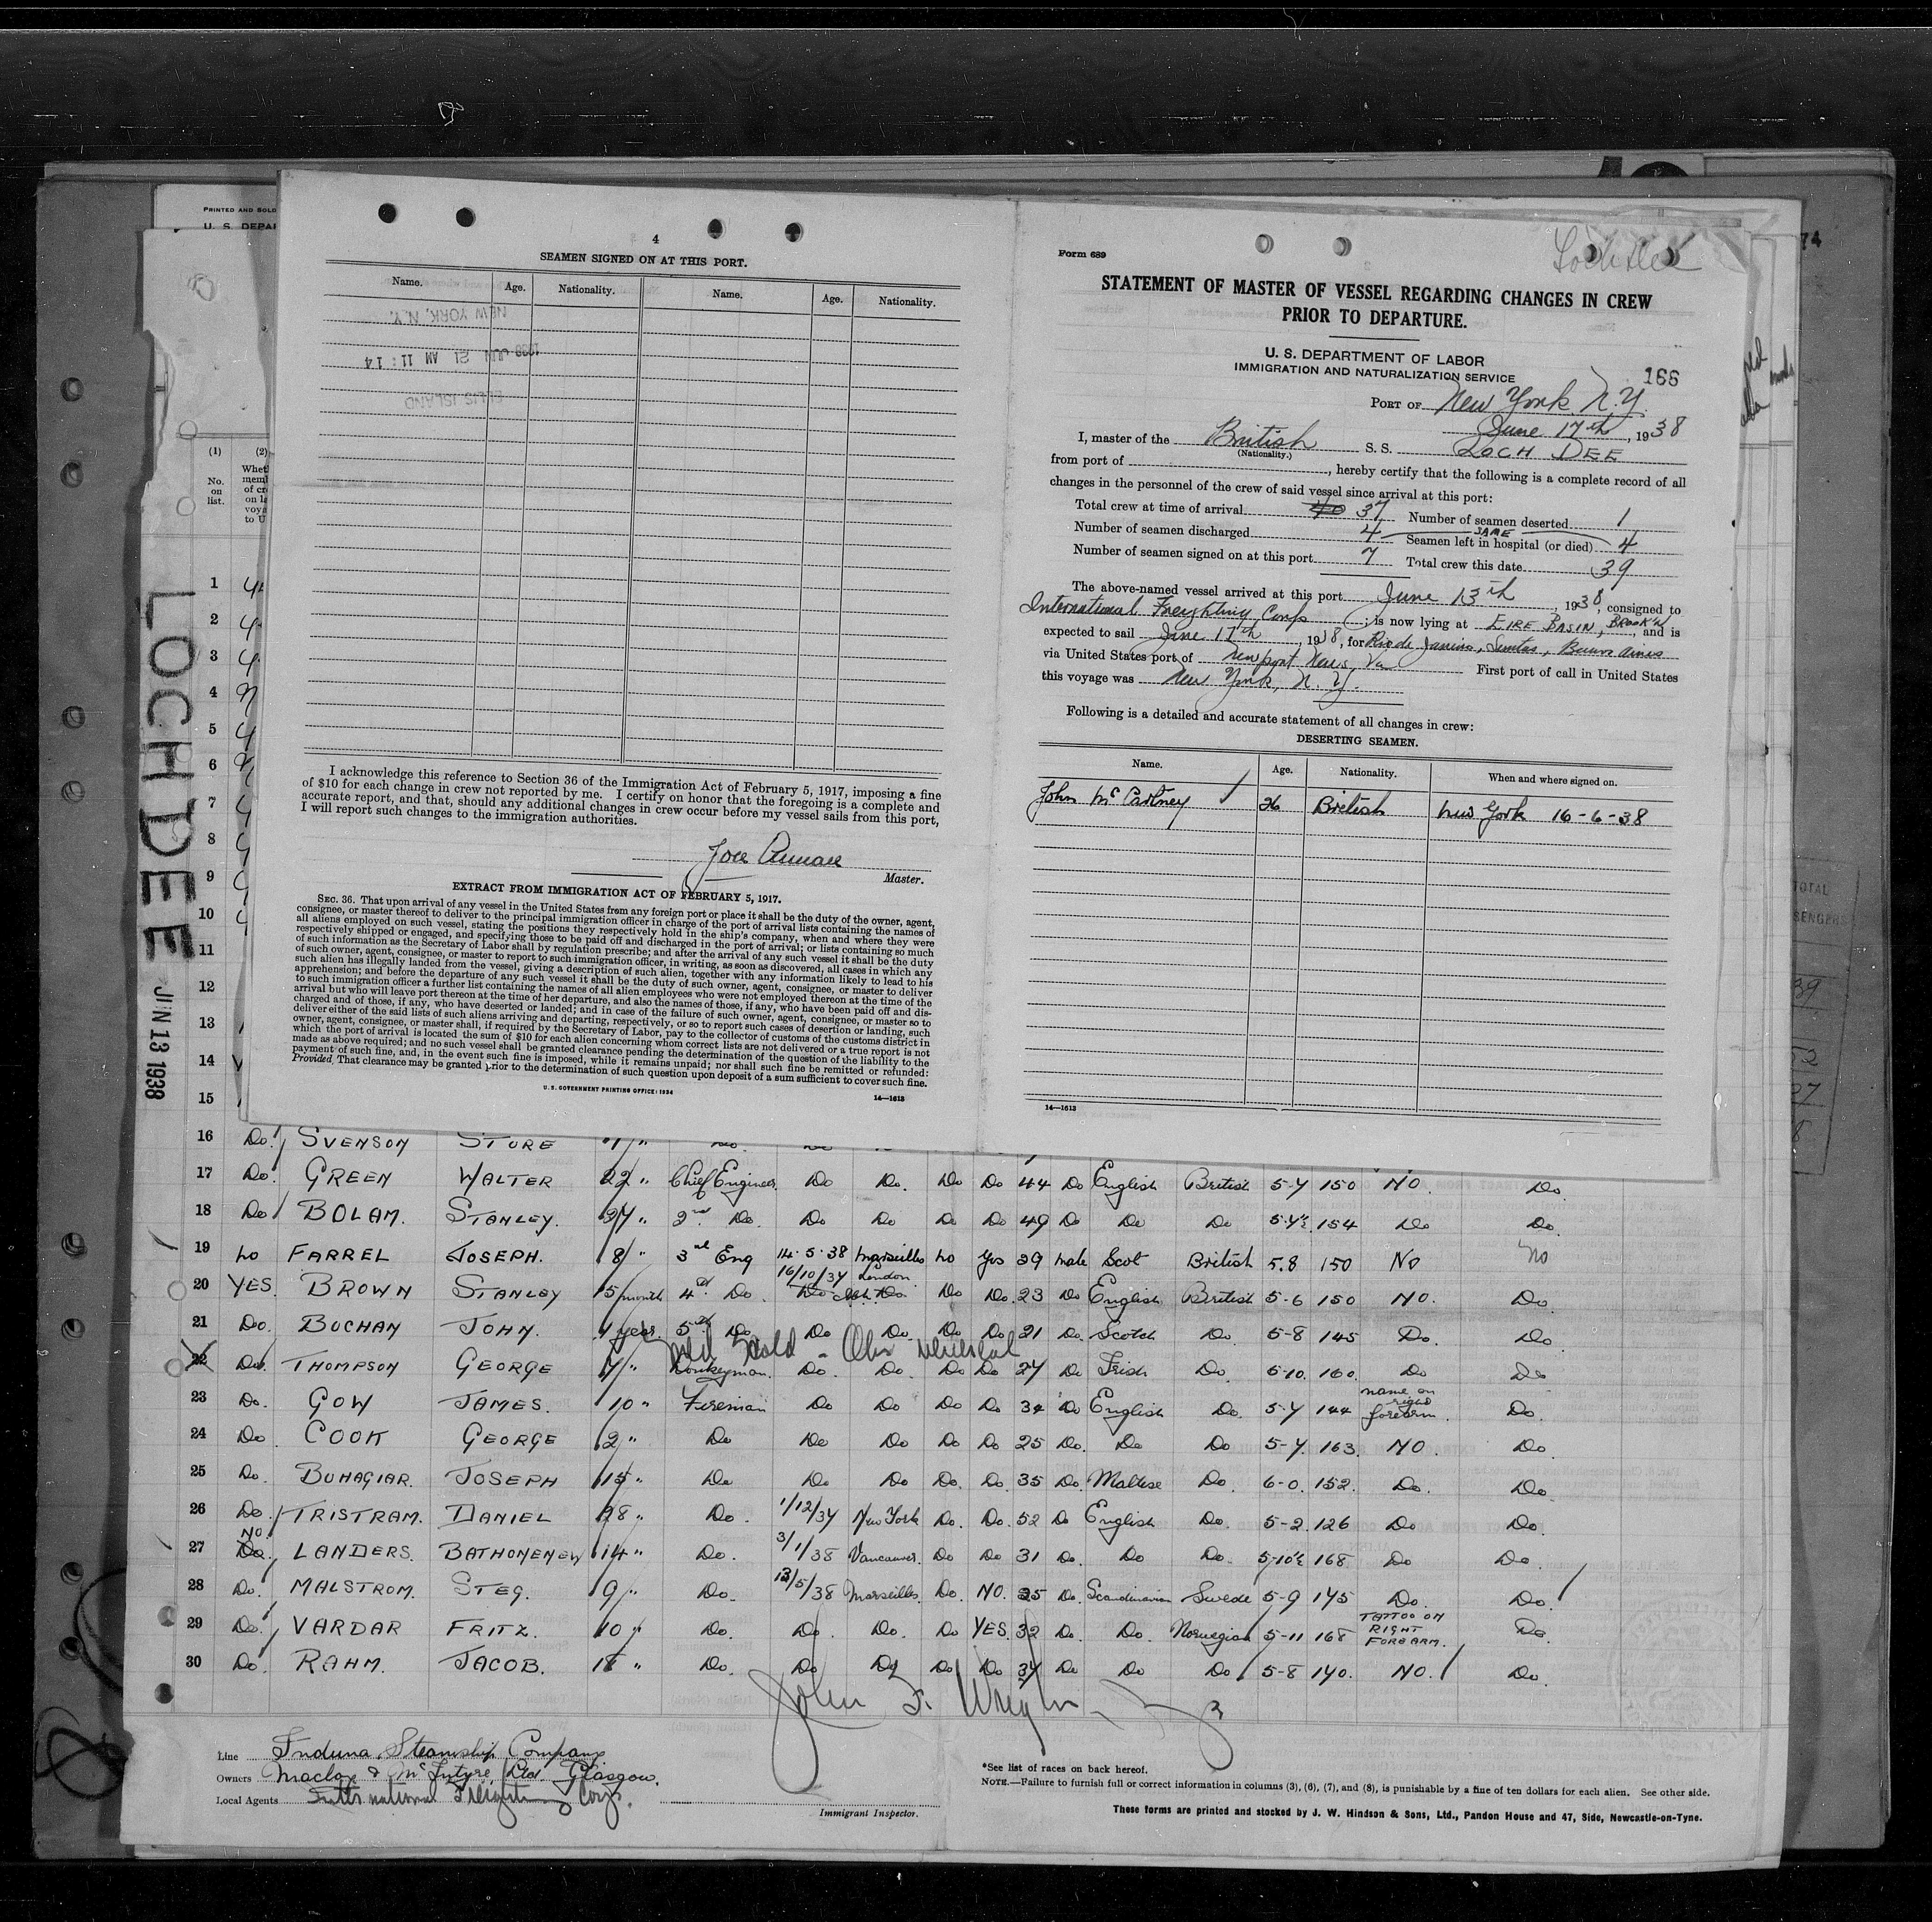 PRINTED AND SOLD
U. S. DEPAR
(1)
(2)
No. on list.
LOCH DEE
JUN 13 1938
4
SEAMEN SIGNED ON AT THIS PORT.
Name. Age. Nationality. Name. Age. Nationality.
NEW YORK, N.Y.
1938 JUN 21 AM 11:14
ELLIS ISLAND
I acknowledge this reference to Section 36 of the Immigration Act of February 5, 1917, imposing a fine
of $10 for each change in crew not reported by me. I certify on honor that the foregoing is a complete and
accurate report, and that, should any additional changes in crew occur before my vessel sails from this port,
I will report such changes to the immigration authorities.
Master.
EXTRACT FROM IMMIGRATION ACT OF FEBRUARY 5, 1917.
SEC. 36. That upon arrival of any vessel in the United States from any foreign port or place it shall be the duty of the owner, agent,
consignee, or master thereof to deliver to the principal immigration officer in charge of the port of arrival lists containing the names of
all aliens employed on such vessel, stating the positions they respectively hold in the ship's company, when and where they were
respectively shipped or engaged, and specifying those to be paid off and discharged in the port of arrival; or lists containing so much
of such information as the Secretary of Labor shall by regulation prescribe; and after the arrival of any such vessel it shall be the duty
of such owner, agent, consignee, or master to report to such immigration officer, in writing, as soon as discovered, all cases in which any
such alien has illegally landed from the vessel, giving a description of such alien, together with any information likely to lead to his
apprehension; and before the departure of any such vessel it shall be the duty of such owner, agent, consignee, or master to deliver
to such immigration officer a further list containing the names of all alien employees who were not employed thereon at the time of the
arrival but who will leave port thereon at the time of her departure, and also the names of those, if any, who have been paid off and dis-
charged and of those, if any, who have deserted or landed; and in case of the failure of such owner, agent, consignee, or master so to
deliver either of the said lists of such aliens arriving and departing, respectively, or so to report such cases of desertion or landing, such
owner, agent, consignee, or master shall, if required by the Secretary of Labor, pay to the collector of customs of the customs district in
which the port of arrival is located the sum of $10 for each alien concerning whom correct lists are not delivered or a true report is not
made as above required; and no such vessel shall be granted clearance pending the determination of the question of the liability to the
payment of such fine, and, in the event such fine is imposed, while it remains unpaid; nor shall such fine be remitted or refunded:
Provided, That clearance may be granted prior to the determination of such question upon deposit of a sum sufficient to cover such fine.
U. S. GOVERNMENT PRINTING OFFICE: 1934
14—1613
Form 689
Loch Dee
STATEMENT OF MASTER OF VESSEL REGARDING CHANGES IN CREW
PRIOR TO DEPARTURE.
U. S. DEPARTMENT OF LABOR
IMMIGRATION AND NATURALIZATION SERVICE
166
PORT OF New York N.Y.
June 17th, 1938
I, master of the British S. S. LOCH DEE
(Nationality.)
from port of , hereby certify that the following is a complete record of all
changes in the personnel of the crew of said vessel since arrival at this port:
Total crew at time of arrival 40 37 Number of seamen deserted 1
Number of seamen discharged 4 SAME Seamen left in hospital (or died) 4
Number of seamen signed on at this port 7 Total crew this date 39
The above-named vessel arrived at this port June 13th, 1938, consigned to
International Freighting Corp; is now lying at EIRE BASIN, BROOK'N, and is
expected to sail June 17th, 1938, for Rio de Janeiro, Santos, Buenos Aires
via United States port of Newport News, Va First port of call in United States
this voyage was New York, N. Y.
Following is a detailed and accurate statement of all changes in crew:
DESERTING SEAMEN.
Name. Age. Nationality. When and where signed on.
John McCartney 26 British New York 16-6-38
14—1613
1
2
3
4
5
6
7
8
9
10
11
12
13
14
15
16 Do. SVENSON STURE
17 Do. GREEN WALTER 22 " Chief Engineer Do Do. Do Do 44 Do English British 5-7 150 NO. Do.
18 Do BOLAM. STANLEY. 27 " 2nd Do. Do Do Do Do 49 Do Do Do 5-7½ 154 Do Do.
19 No FARREL JOSEPH. 8 " 3rd Eng 14.5.38 Marseilles No Yes 29 male Scot British 5.8 150 No No
20 YES. BROWN STANLEY 5 month 4th Do. 16/10/37 London Do Do. 23 Do English British 5-6 150 NO. Do.
21 Do. BUCHAN JOHN. 1 year. 5th Do. Do Do. Do Do 21 Do. Scotch Do. 5-8 145 Do. Do.
22 Do. THOMPSON GEORGE 7 " Donkeyman. Do. Do. Do Do 27 Do Irish Do. 5-10. 160. Do Do
23 Do. GOW JAMES. 10 " Fireman Do Do Do Do 34 Do English Do. 5-7 144 name on right forearm. Do.
24 Do COOK GEORGE 2 " Do Do Do Do Do 25 Do. Do Do 5-7. 163. NO. Do
25 Do. BUHAGIAR. JOSEPH 15 " Do Do Do Do. Do. 35 Do. Maltese Do. 6-0. 152. Do. Do.
26 Do. TRISTRAM. DANIEL 28 " Do. 1/12/37 New York Do. Do. 52 Do English Do. 5-2. 126 Do Do.
27 NO LANDERS. BATHOMENEW 14 " Do. 3/1/38 Vancouver. Do Do 31 Do. Do Do. 5-10½ 168 Do Do.
28 Do. MALSTROM. STEG. 9 " Do. 13/5/38 Marseilles. Do. NO. 25 Do. Scandinavian Swede 5-9 175 Do. Do.
29 Do. VARDAR FRITZ. 10 " Do. Do. Do. Do YES. 32 Do. Do. Norwegian 5-11 168 TATTOO ON RIGHT FOREARM. Do.
30 Do. RAHM. JACOB. 18 " Do. Do Do Do Do 37 Do Do Do 5-8 140. NO. Do
John F. Wright
Line Induna Steamship Company
Owners Maclay & McIntyre, Ltd. Glasgow.
Local Agents International Freighting Corp.
Immigrant Inspector.
*See list of races on back hereof.
NOTE.—Failure to furnish full or correct information in columns (3), (6), (7), and (8), is punishable by a fine of ten dollars for each alien. See other side.
These forms are printed and stocked by J. W. Hindson & Sons, Ltd., Pandon House and 47, Side, Newcastle-on-Tyne.
74
TOTAL